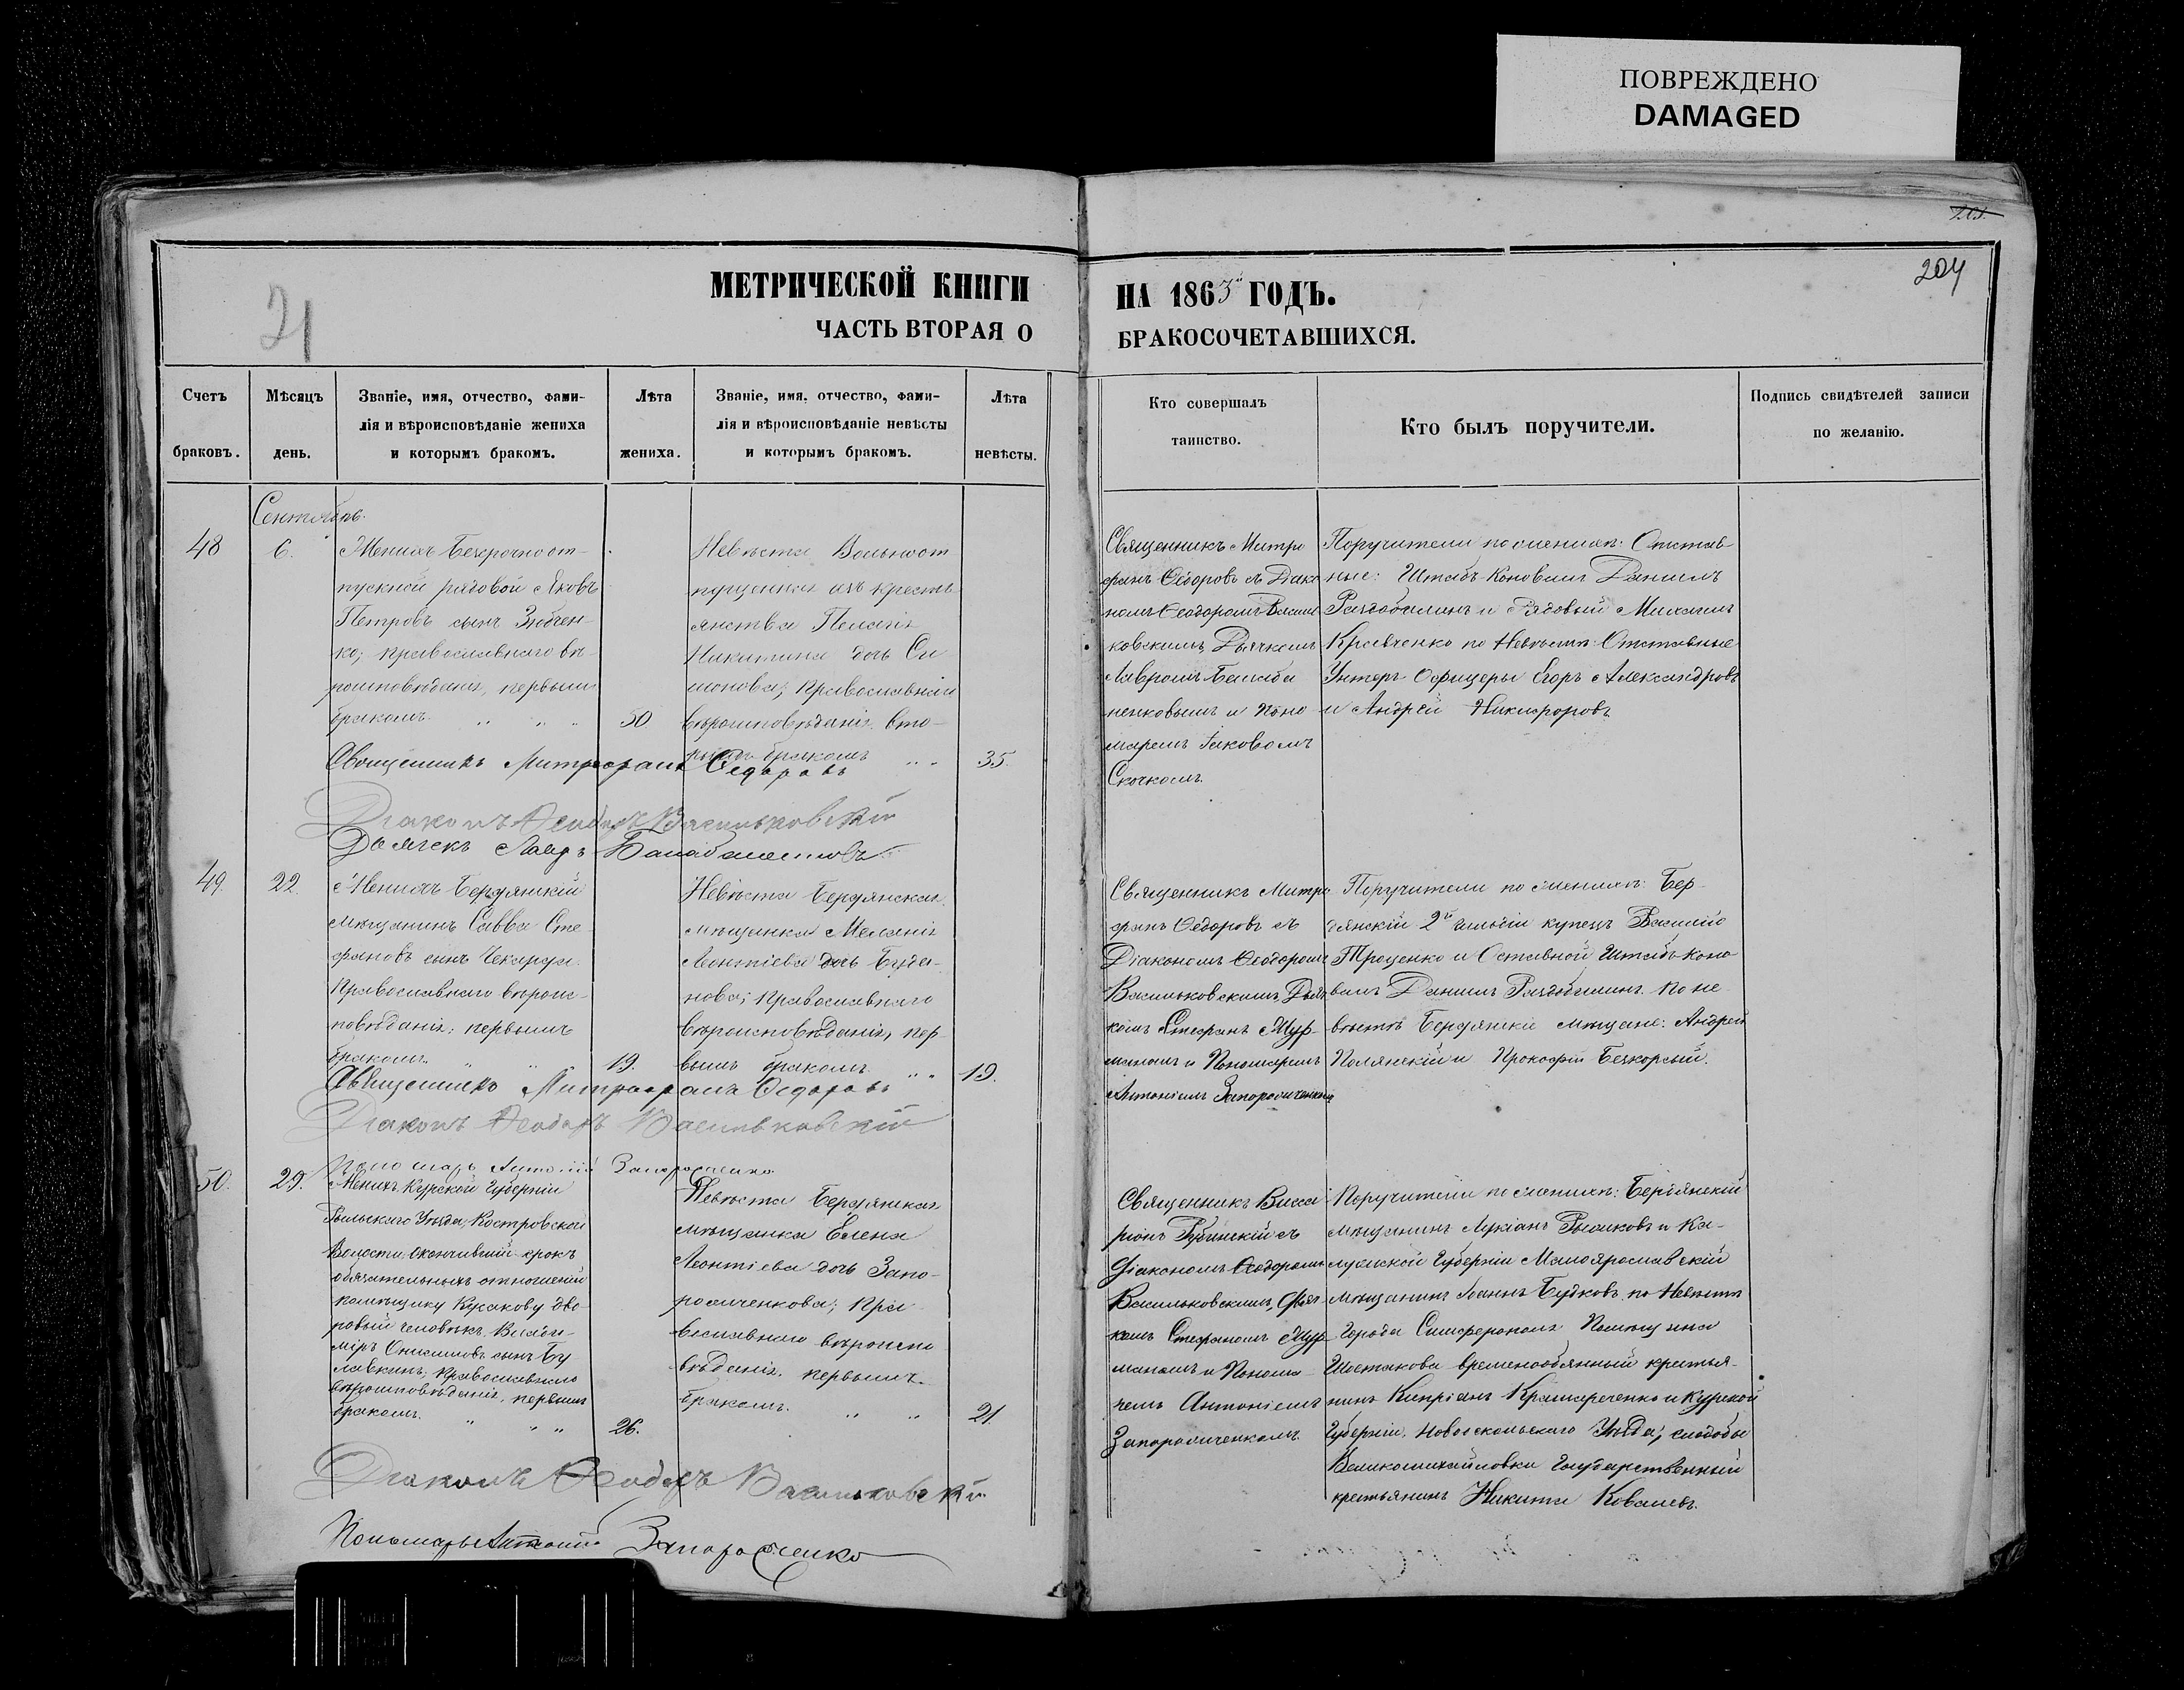 ПОВРЕЖДЕНО
DAMAGED
204
21
МЕТРИЧЕСКОЙ КНИГИ
ЧАСТЬ ВТОРАЯ О
НА 1863й ГОДЪ.
БРАКОСОЧЕТАВШИХСЯ.
Счетъ
браковъ.
Мѣсяцъ
день.
Званіе, имя, отчество, фами-
лія и вѣроисповѣданіе жениха
и которымъ бракомъ.
Лѣта
жениха.
Званіе, имя, отчество, фами-
лія и вѣроисповѣданіе невѣсты
и которымъ бракомъ.
Лѣта
невѣсты.
Кто совершалъ
таинство.
Кто былъ поручители.
Подпись свидѣтелей записи
по желанію.
Сентябрь.
48
6.
Женихъ Безсрочноот-
пускной рядовой Яковъ
Петровъ сынъ Зюбчен-
ко; православнаго вѣ-
роисповѣданія, первымъ
бракомъ. " " "
50
Невѣста Вольноот
пущенная изъ кресть
янства Пелагія
Никитина дочь Си
монова; Православнаго
вѣроисповѣданія. вто-
рымъ бракомъ " "
35.
Священникъ Митро
фанъ Ѳедоровъ съ Діако
номъ Ѳеодоромъ Василь
ковскимъ Дьячкомъ
Лавромъ Балаба
ненковымъ и Поно
маремъ Іаковомъ
Скочкомъ.
Поручители по женихѣ: Отстав
ные: Штабъ-Коновалъ Даніилъ
Раздобылинъ и Рядовый Михаилъ
Кравченко по Невѣстѣ: Отставные
Унтеръ Офицеры Егоръ Александровъ
и Андрей Никифоровъ
Священникъ Митрофанъ Ѳедоровъ
Діаконъ Ѳеодоръ Васильковскій
Дьячекъ Лавръ
49.
22.
Женихъ Бердянскій
мѣщанинъ Савва Сте-
фановъ сынъ
Православнаго вѣроис-
повѣданія; первымъ
бракомъ. " "
19.
Невѣста Бердянская
мѣщанка Меланія
Леонтіева дочь
нова; Православнаго
вѣроисповѣданія, пер-
вымъ бракомъ. " "
19.
Священникъ Митро
фанъ Ѳедоровъ съ
Діакономъ Ѳеодоромъ
Васильковскимъ, Дьяч
комъ Стефаномъ Мур-
маномъ и Пономаремъ
Антоніемъ Запорощенкомъ
Поручители по женихѣ: Бер-
дянскій 2й гильдіи купецъ Василій
Троценко и Отставной Штабъ-Коно
валъ Даніилъ Раздобылинъ. По не
вѣстѣ Бердянскіе мѣщане: Андрей
Полянскій и Прокофій
Священникъ Митрофанъ Ѳедоровъ
Діаконъ Ѳеодоръ Васильковскій
Пономарь Антоній Запорощенко
50.
29.
Женихъ Курской Губерніи
Рыльскаго Уѣзда, Костровской
Волости окончившій срокъ
обязательныхъ отношеній
помѣщику дво-
ровый человѣкъ Влади-
міръ Онисимовъ сынъ Бу
лавкинъ; Православнаго
вѣроисповѣданія, первымъ
бракомъ. " " "
26.
Невѣста Бердянская
мѣщанка Елена
Леонтіева дочь Запо-
рощенкова; Пра-
вославнаго вѣроиспо
вѣданія. первымъ
бракомъ. " "
21
Священникъ Висса
ріонъ съ
Діакономъ Ѳеодоромъ
Васильковскимъ, Дьяч
комъ Стефаномъ Мур
маномъ и Понома-
ремъ Антоніемъ
Запорощенкомъ.
Поручители по женихѣ: Бердянскій
мѣщанинъ Лукіанъ Рысаковъ и Ка-
лужской Губерніи Малоярославскій
мѣщанинъ Іоаннъ Будковъ. по Невѣстѣ
Города Симферополя Помѣщика
Шостакова временнообязанный крестья-
нинъ Кипріанъ и Курской
Губерніи, Новооскольскаго Уѣзда, слободы
Великомихайловки Государственный
крестьянинъ Никита Ковалевъ.
Діаконъ Ѳеодоръ Васильковскій
Пономарь Антоній Запорощенко